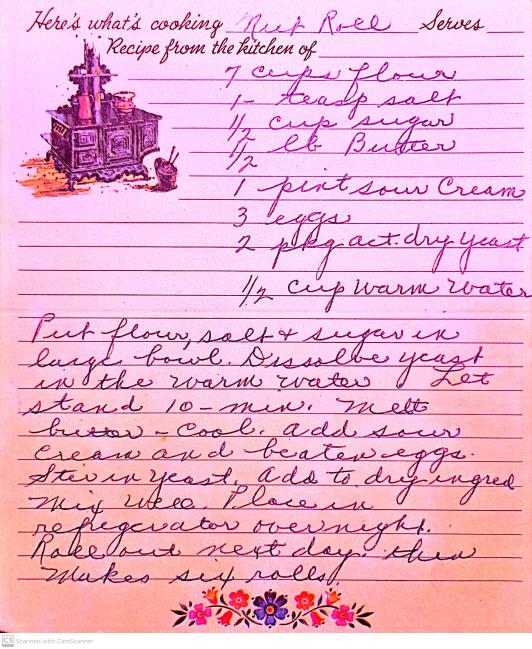 Here's what's cooking Nut Roll Serves
Recipe from the kitchen of
7 cups flour
1- teasp salt
1/2 cup sugar
1/2 lb Butter
1 pint sour Cream
3 eggs
2 pkg act. dry yeast
1/2 cup warm water
Put flour, salt & sugar in
large bowl. Dissolve yeast
in the warm water Let
stand 10-min. Melt
butter - cool. add sour
cream and beaten eggs.
Stir in yeast. add to dry ingred
Mix well. Place in
refrigerator overnight.
Roll out next day. thin
Makes six rolls.
CS Scanned with CamScanner